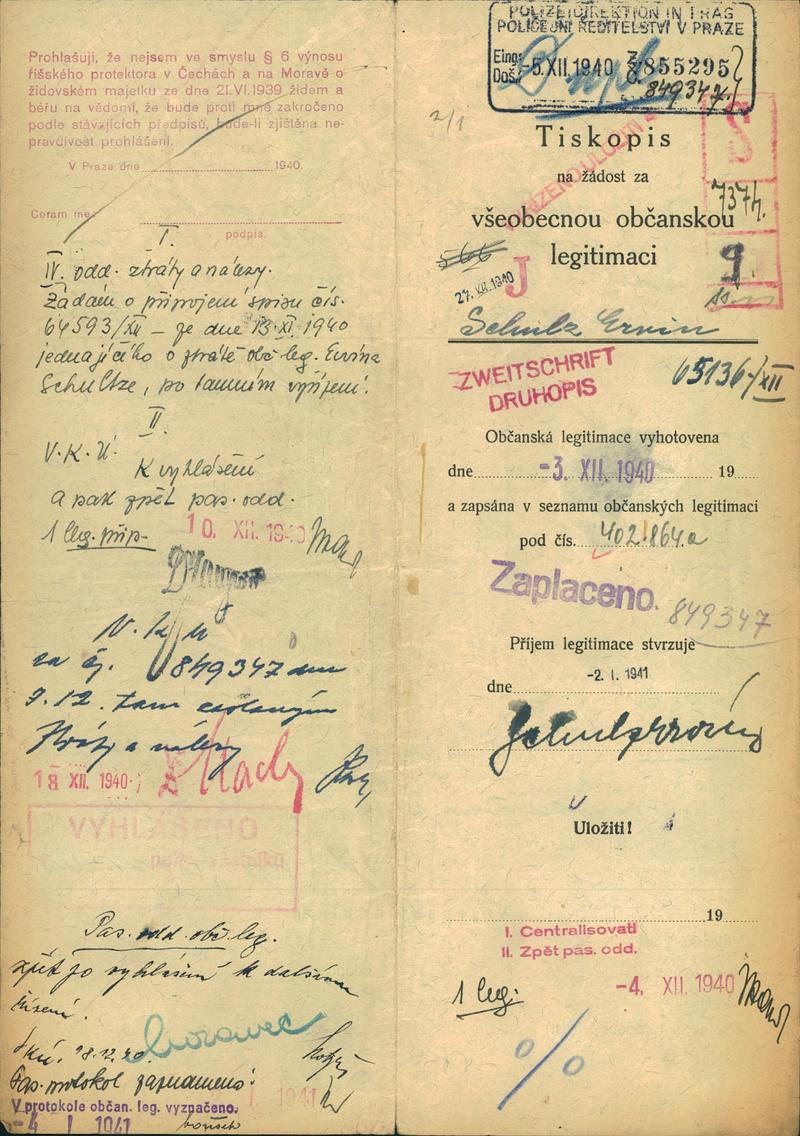 Prohlašuji, že nejsem ve smyslu § 6 výnosu
říšského protektora v Čechách a na Moravě o
židovském majetku ze dne 21. VI. 1939 židem a
béřu na vědomí, že bude proti mně zakročeno
podle stávajících předpisů, bude-li zjištěna ne-
pravdivost prohlášení.
V Praze dne 1940.
Coram me:
podpis.
I.
IV. odd. ztráty a nálezy.
Žádám o připojení spisu čís.
64593/XII – ze dne 13. XI. 1940
jednajícího o ztrátě obč. leg. Ervína
Schultze, po tamním vyřízení.
II
V. K. Ú.
K vyhlášení
a pak zpět pas. odd.
1 leg. příp.
10. XII. 1940
849347
9. 12.
Ztráty a nálezy
18 XII. 1940
VYHLÁŠENO
Pas. odd. obč. leg.
zpět po vyhlášení k dalšímu
řízení.
Moravec
Pas. protokol zaznamenó:
V protokole občan. leg. vyznačeno.
-4 I 1941
POLIZEIDIREKTION IN PRAG
POLICEJNÍ ŘEDITELSTVÍ V PRAZE
Eing.
Doš.
-5. XII. 1940
855295
849347
2/1
Tiskopis
na žádost za
všeobecnou občanskou
legitimaci
737h.
J
27. XII. 1940
9.
Schulz Ervin
ZWEITSCHRIFT
DRUHOPIS
65136/XII
Občanská legitimace vyhotovena
dne -3. XII. 1940 19
a zapsána v seznamu občanských legitimací
pod čís. 402.864.a
Zaplaceno.
849347
Příjem legitimace stvrzuje
dne -2. I. 1941
Uložiti!
19
I. Centralisovati
II. Zpět pas. odd.
1 leg.
-4. XII. 1940